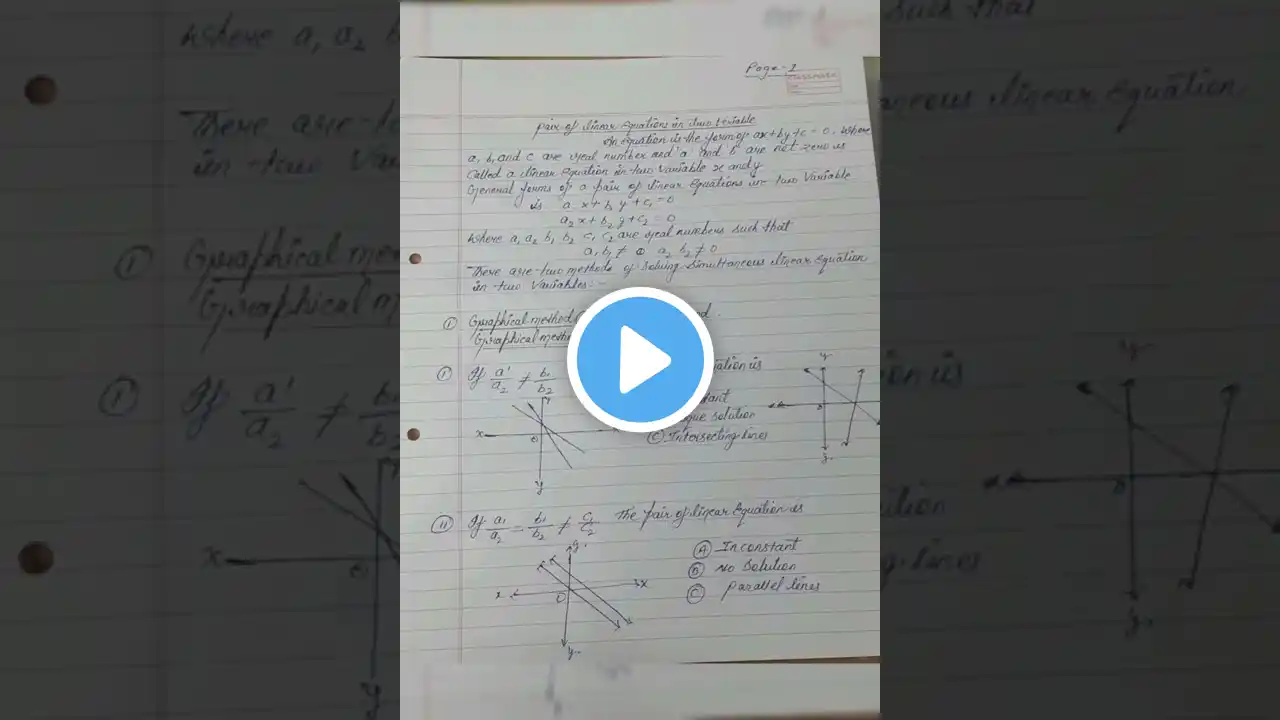 Page-1
Pair of linear Equations in two Variable
An Equation in the form of ax+by+c=0, where
a, b, and c are real number and a and b are not zero is
Called a linear Equation in two Variable x and y
General forms of a pair of linear Equations in two Variable
is a x+b₁ y+c₁=0
a₂ x+b₂ y+c₂=0
where a₁ a₂ b₁ b₂ c₁ c₂ are real numbers such that
a₁ b₁ ≠ 0 a₂ b₂ ≠ 0
There are two methods of Solving Simultaneous linear Equation
in two Variables:-
① Graphical method
Graphical method
① If a'/a₂ ≠ b₁/b₂ is
solution
Ⓒ Intersecting lines
x y 0 y
y 0 y
② If a₁/a₂ = b₁/b₂ ≠ c₁/c₂ The pair of linear Equation is
Ⓐ Inconstant
Ⓑ No Solution
Ⓒ Parallel lines
y x 0 x y